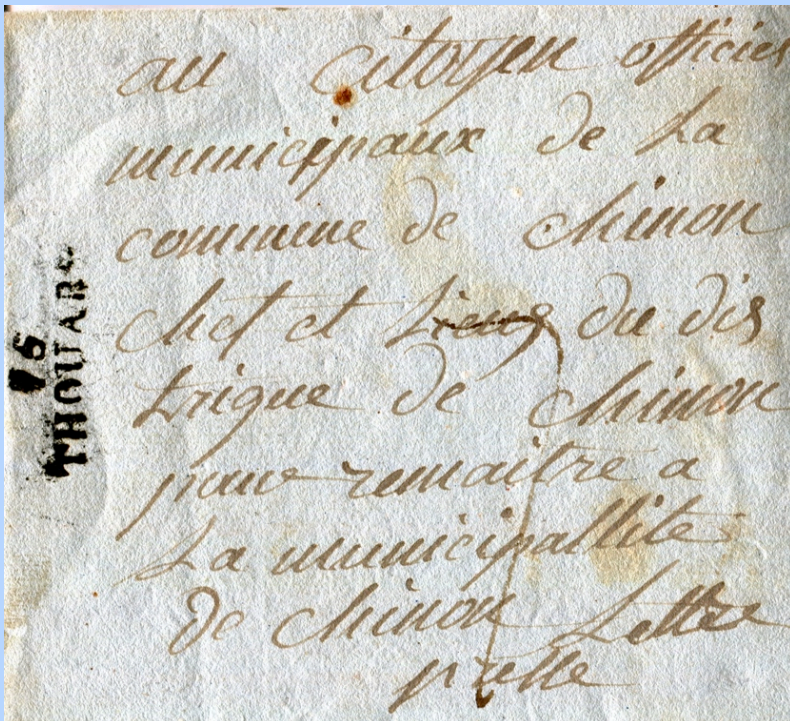 au Citoyen officier
municipaux de La
commune de chinon
chef et Lieux du dis
trique de chinon
pour remaitre a
La municipallite
de chinon Lettre
THOUARS